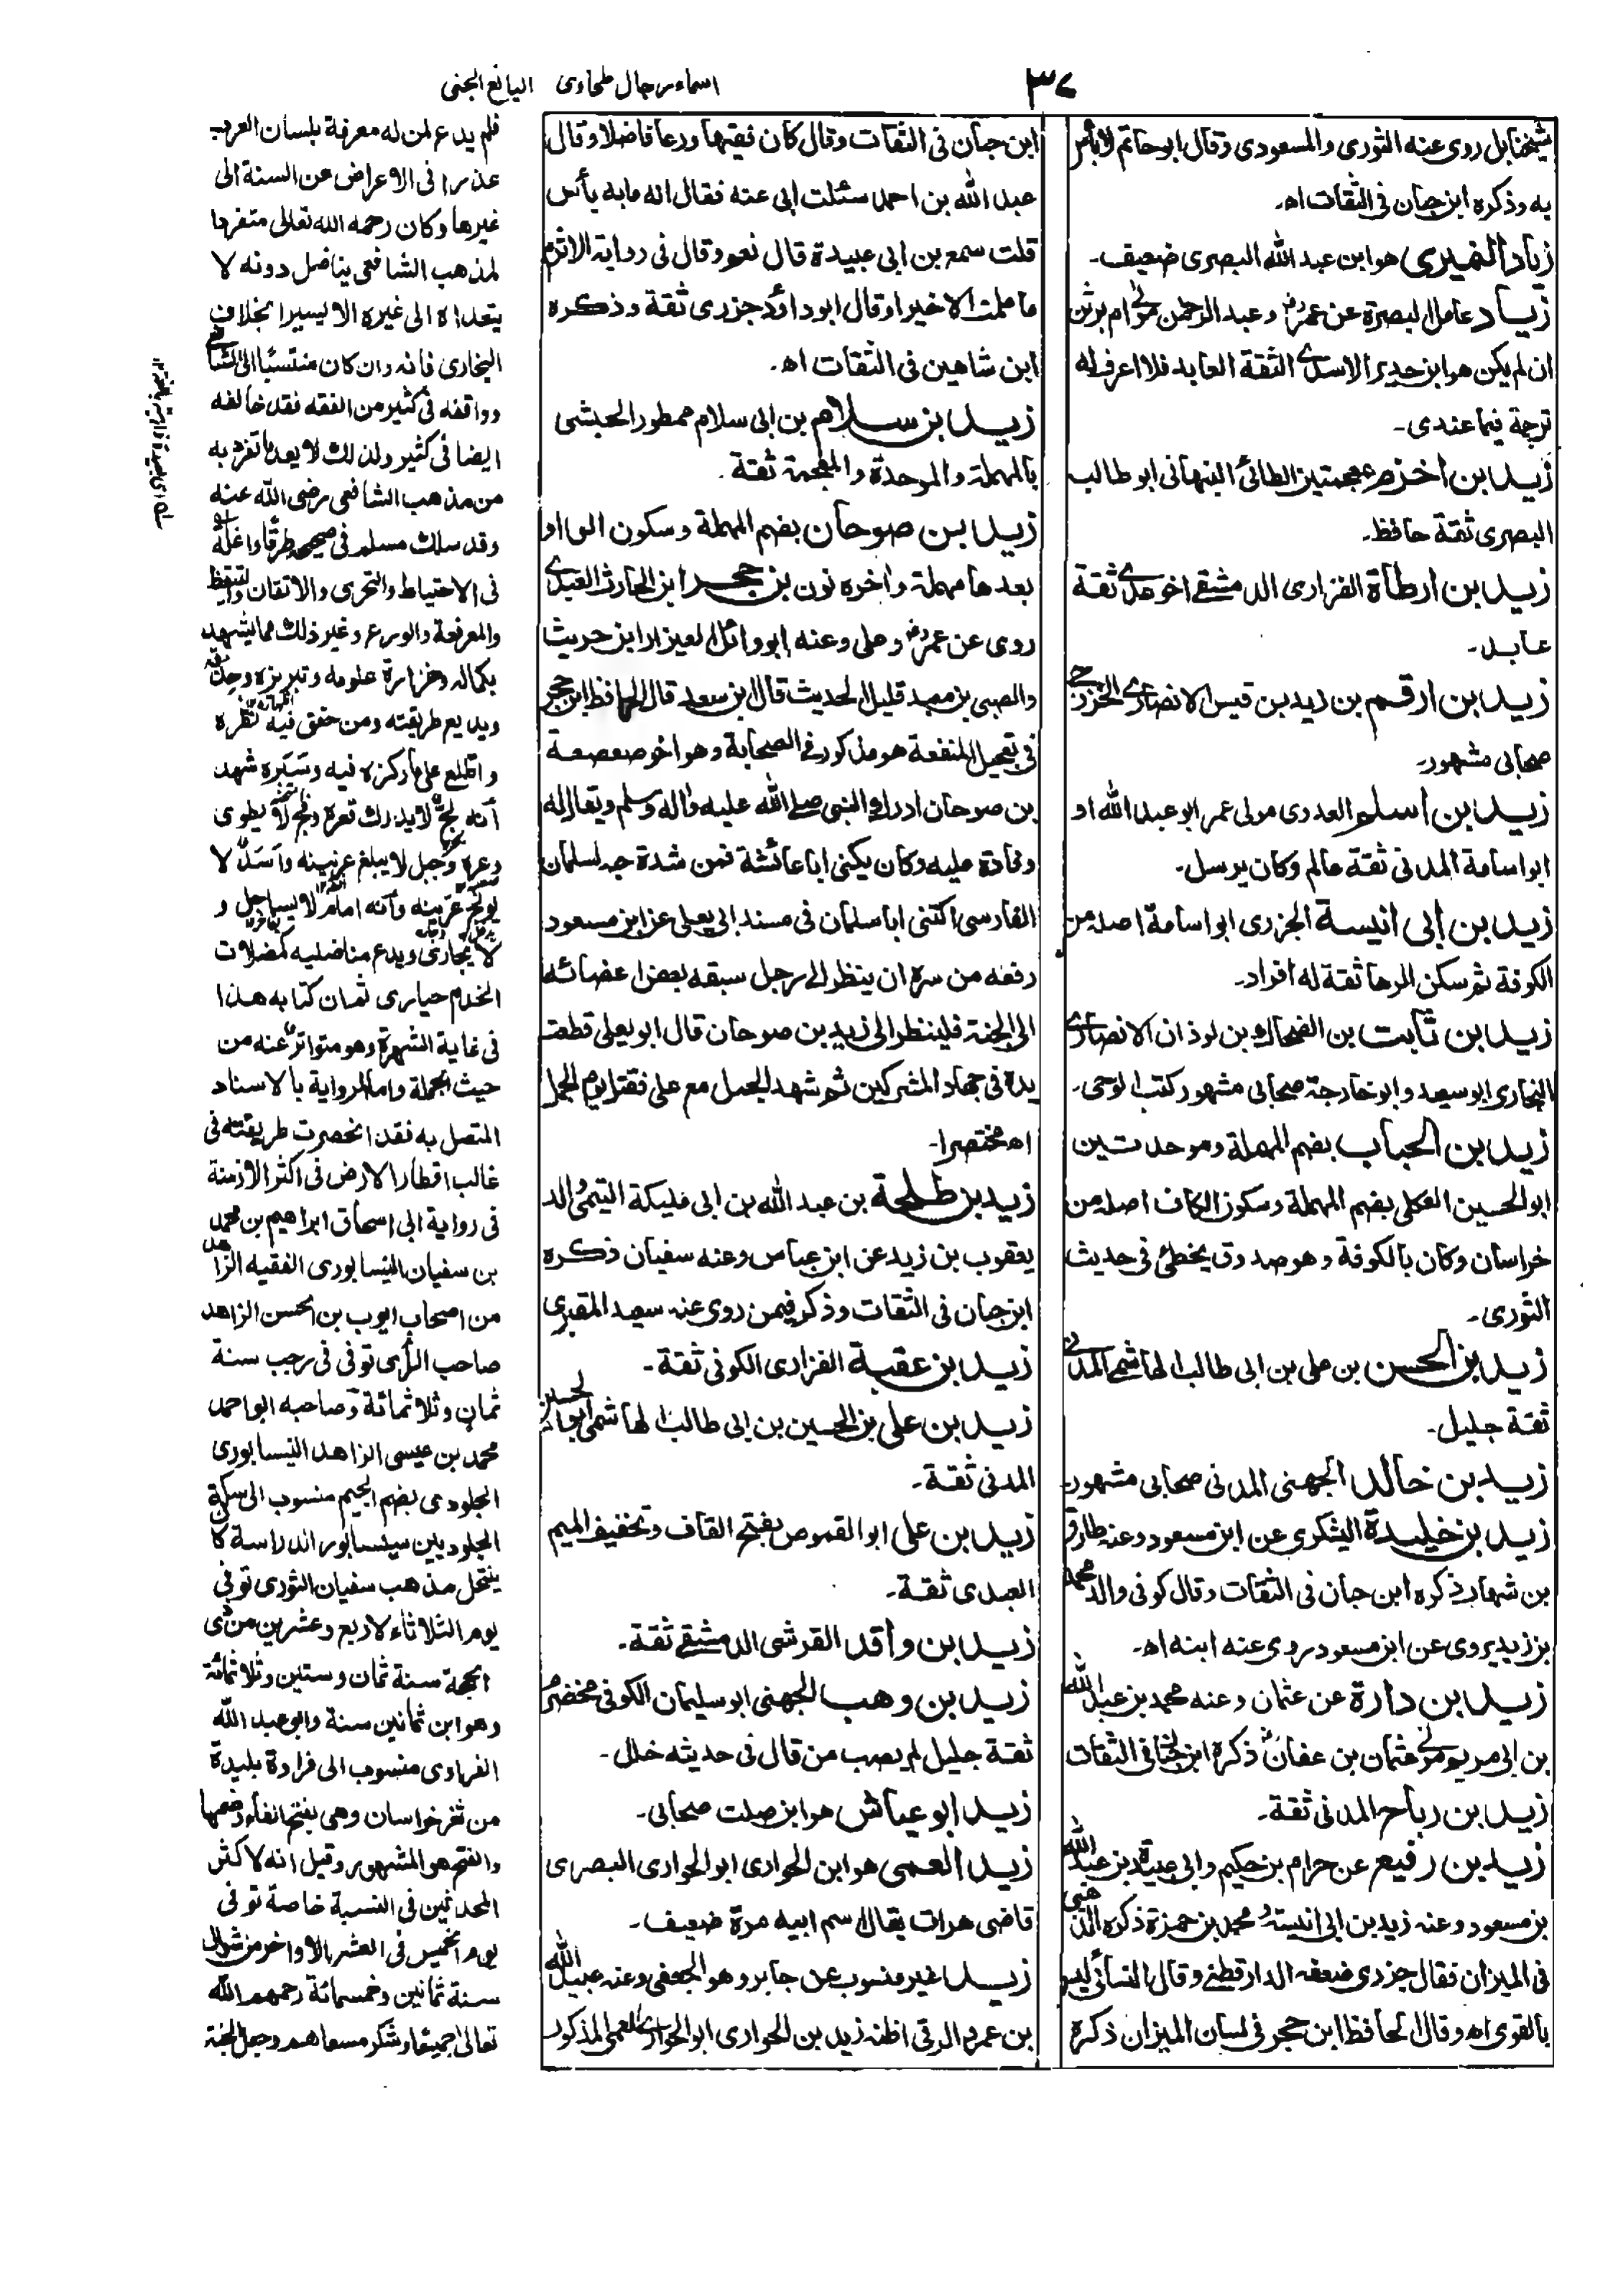 ٣٧
اسماء رجال طحاوى
اليانع الجنى
شيخنا بل روى عنه الثورى والمسعودى وقال ابوحاتم لا بأس
به وذكره ابن حبان فى الثقات اه۔
زياد النميرى هو ابن عبد الله البصرى ضعيف۔
زياد عامل البصرة عن عمر رض وعبد الرحمن مولى ام برثن
ان لم يكن هو ابن حدير الاسدى الثقة العابد فلا اعرف له
ترجمة فيما عندى۔
زيد ابن اخزم بمعجمتين الطائى النبهانى ابو طالب
البصرى ثقة حافظ۔
زيد بن ارطاة الفزارى الدمشقى اخو عدى ثقة
عابد۔
زيد بن ارقم بن زيد بن قيس الانصارى الخزرجى
صحابى مشهور۔
زيد بن اسلم العدوى مولى عمر ابو عبد الله او
ابو اسامة المدنى ثقة عالم وكان يرسل۔
زيد بن ابى انيسة الجزرى ابو اسامة اصله من
الكوفة ثم سكن الرها ثقة له افراد۔
زيد ابن ثابت بن الضحاك بن لوذان الانصارى
النجارى ابو سعيد وابو خارجة صحابى مشهور كتب الوحى۔
زيد بن الحباب بضم المهملة وموحدتين
ابو الحسين العكلى بضم المهملة وسكون الكاف اصله من
خراسان وكان بالكوفة وهو صدوق يخطئ فى حديث
الثورى۔
زيد بن الحسن بن على بن ابى طالب الهاشمى المدنى
ثقة جليل۔
زيد بن خالد الجهنى المدنى صحابى مشهور
زيد بن خليدة اليشكرى عن ابن مسعود وعنه طارق
بن شهاب ذكره ابن حبان فى الثقات وقال كوفى والد محمد
بن زيد يروى عن ابن مسعود روى عنه ابنه اه۔
زيد ابن دارة عن عثمان وعنه محمد بن عبد الله
بن ابى مريم مولى عثمان بن عفان رض ذكره ابن حبان فى الثقات
زيد بن رباح المدنى ثقة۔
زيد بن رفيع عن حرام بن حكيم وابى عبيدة بن عبد الله
بن مسعود وعنه زيد بن ابى انيسة ومحمد بن حمزة ذكره الذهبى
فى الميزان فقال جزرى ضعفه الدارقطنى وقال النسائى ليس
بالقوى اه وقال الحافظ ابن حجر فى لسان الميزان ذكره
ابن حبان فى الثقات وقال كان فقيها ورعا فاضلا وقال
عبد الله بن احمد سئلت ابى عنه فقال انه مابه بأس
قلت سمع بن ابى عبيدة قال نعم وقال فى رواية الاثرم
ما علمت الا خيرا وقال ابو داؤد جزرى ثقة وذكره
ابن شاهين فى الثقات اه۔
زيد بن سلام بن ابى سلام ممطور الحبشى
بالمهملة والموحدة والمعجمة ثقة۔
زيد بن صوحان بضم المهملة وسكون الواو
بعدها مهملة واخره نون بن حجر ابن الحارث العبدى
روى عن عمر رض وعلى وعنه ابو وائل والعيزار ابن حريث
والصبى بن معبد قليل الحديث قال ابن سعد قال الحافظ ابن حجر
فى تعجيل المنفعة هو مذكور فى الصحابة وهو اخو صعصعة
بن صوحان ادرك النبى صلى الله عليه واله وسلم ويقال له
وفادة عليه وكان يكنى ابا عائشة فمن شدة حبه لسلمان
الفارسى اكتنى ابا سلمان فى مسند ابى يعلى عن ابن مسعود
رفعه من سره ان ينظر الى رجل سبقه بعض اعضائه
الى الجنة فلينظر الى زيد بن صوحان قال ابو يعلى قطعت
يده فى جهاد المشركين ثم شهد الجمل مع على فقتل يوم الجمل
اه مختصرا۔
زيد بن طلحة بن عبد الله بن ابى مليكة التيمى والد
يعقوب بن زيد عن ابن عباس وعنه سفيان ذكره
ابن حبان فى الثقات وذكر فيمن روى عنه سعيد المقبرى
زيد بن عقبة الفزارى الكوفى ثقة۔
زيد بن على بن الحسين بن ابى طالب الهاشمى ابو الحسين
المدنى ثقة۔
زيد بن على ابو القموص بفتح القاف وتخفيف الميم
العبدى ثقة۔
زيد بن واقد القرشى الدمشقى ثقة۔
زيد بن وهب الجهنى ابو سليمان الكوفى مخضرم
ثقة جليل لم يصب من قال فى حديثه خلل۔
زيد ابو عياش هو ابن صلت صحابى۔
زيد العمى هو ابن الحوارى ابو الحوارى البصرى
قاضى هرات يقال اسم ابيه مرة ضعيف۔
زيد غير منسوب عن جابر وهو الجعفى وعنه عبيد الله
بن عمرو الرقى اظنه زيد بن الحوارى ابو الحوارى العمى المذكور
فلم يدع لمن له معرفة بلسان العرب
عذرا فى الاعراض عن السنة الى
غيرها وكان رحمه الله تعالى متفردا
لمذهب الشافعى يناضل دونه لا
يتعداه الى غيره الا يسيرا بخلاف
البخارى فانه وان كان منتسبا الى الشافعى
ووافقه فى كثير من الفقه فقد خالفه
ايضا فى كثير ولذلك لا يعد ما تفرد به
من مذهب الشافعى رضى الله عنه
وقد سلك مسلم فى صحيحه طرقا واغلة
فى الاحتياط والتحرى والاتقان والتيقظ
والمعرفة والورع وغير ذلك مما يشهد
بكماله وغزارة علومه وتبريزه وحذقه
وبديع طريقته ومن حقق فيه نظره
واطلع على ما ركزه فيه وسبره شهد
انه لج لا يدرك قعره وفج لا يطوى
وعره وجبل لا يبلغ عرنينه واسد لا
يولج عرينه وانه امام لا يساجل و
لا يجارى ويدع مناضليه كمضلات
الخدم حيارى ثم ان كتابه هذا
فى غاية الشهرة وهو متواتر عنه من
حيث الجملة واما الرواية بالاسناد
المتصل به فقد انحصرت طريقته فى
غالب اقطار الارض فى اكثر الازمنة
فى رواية ابى اسحاق ابراهيم بن محمد
بن سفيان النيسابورى الفقيه الزاهد
من اصحاب ايوب بن الحسن الزاهد
صاحب الرأى توفى فى رجب سنة
ثمان وثلاثمائة وصاحبه ابو احمد
محمد بن عيسى الزاهد النيسابورى
الجلودى بضم الجيم منسوب الى سكة
الجلوديين بنيسابور الدراسة كان
ينتحل مذهب سفيان الثورى توفى
يوم الثلاثاء لاربع وعشرين من ذى
الحجة سنة ثمان وستين وثلاثمائة
وهو ابن ثمانين سنة وابو عبد الله
الفراوى منسوب الى فراوة بليدة
من ثغر خراسان وهى بفتح الفاء وضمها
والفتح هو المشهور وقيل انه لاكثر
المحدثين فى النسبة خاصة توفى
يوم الخميس فى العشر الاواخر من شوال
سنة ثمانين وخمسمائة رحمهم الله
تعالى اجمعين وشكر مسعاهم وجعل الجنة